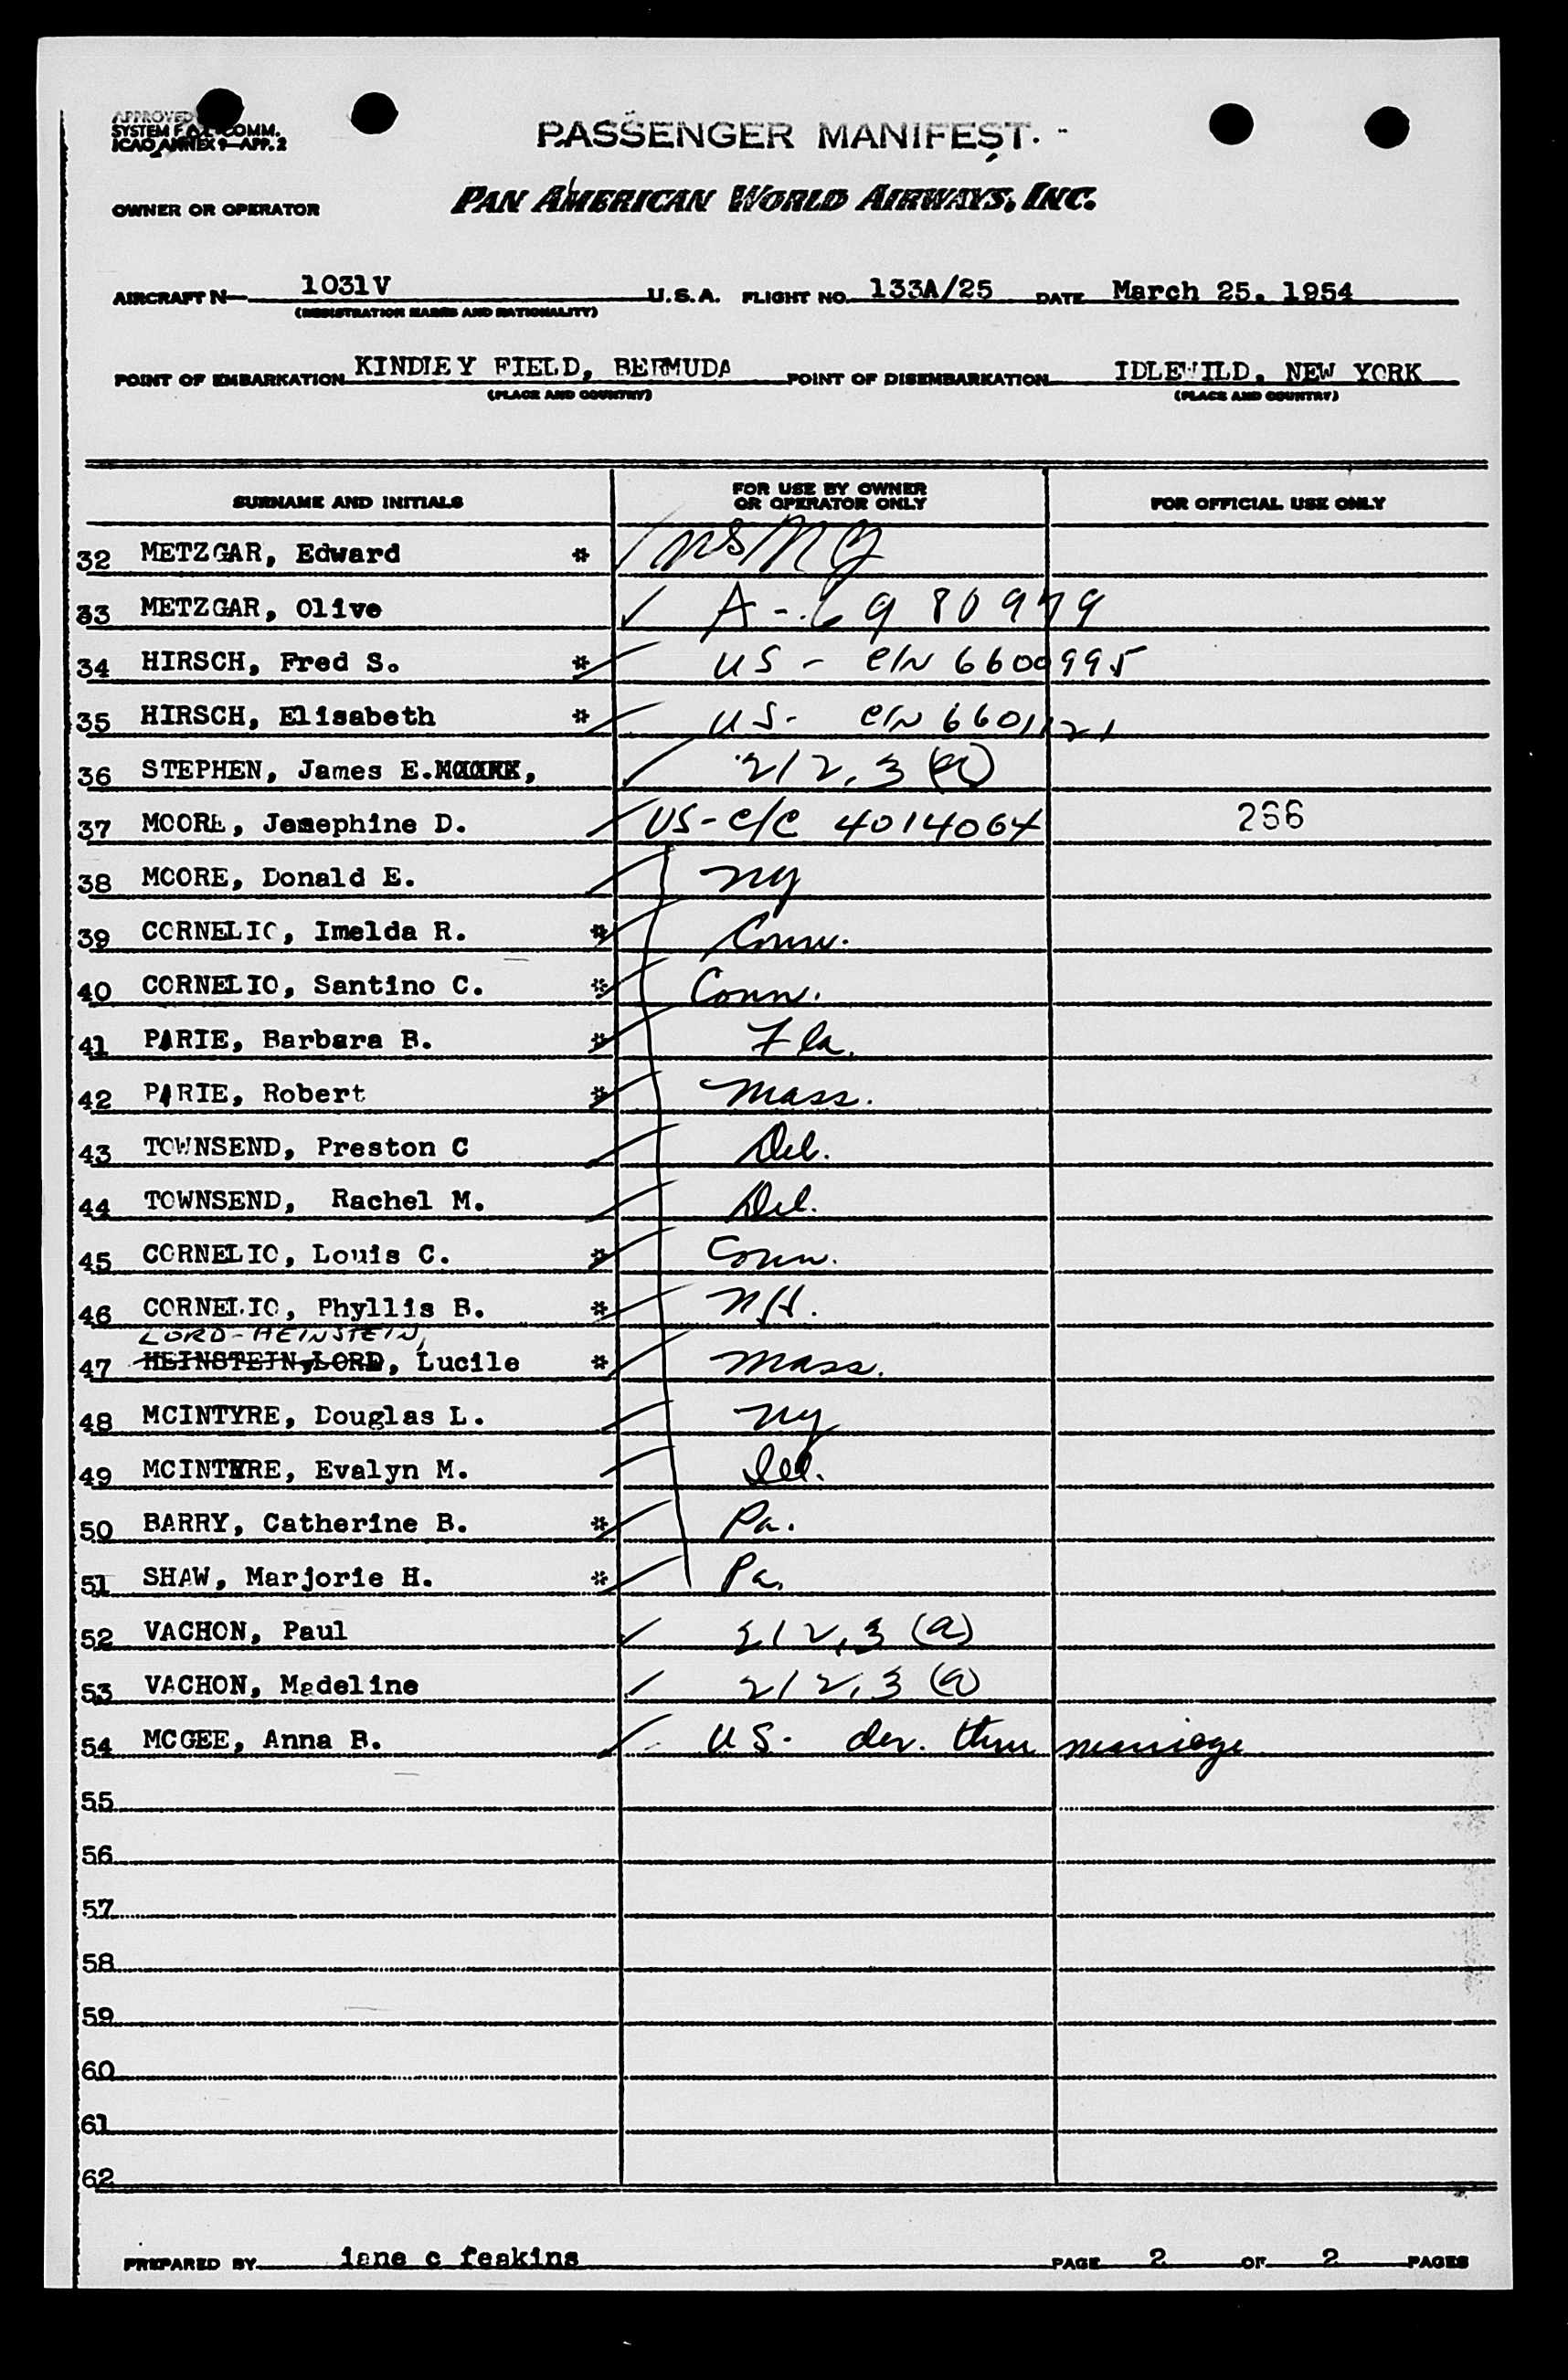 APPROVED
SYSTEM F.A.L. COMM.
ICAO ANNEX 9—APP. 2
PASSENGER MANIFEST.
OWNER OR OPERATOR PAN AMERICAN WORLD AIRWAYS, INC.
AIRCRAFT N— 1031V U.S.A. FLIGHT NO. 133A/25 DATE March 25, 1954
(REGISTRATION MARKS AND NATIONALITY)
POINT OF EMBARKATION KINDLEY FIELD, BERMUDA POINT OF DISEMBARKATION IDLEWILD, NEW YORK
(PLACE AND COUNTRY) (PLACE AND COUNTRY)
SURNAME AND INITIALS FOR USE BY OWNER OR OPERATOR ONLY FOR OFFICIAL USE ONLY
32 METZGAR, Edward *
33 METZGAR, Olive A-6980979
34 HIRSCH, Fred S. * US - C/N 6600995
35 HIRSCH, Elisabeth * US- C/N 6601121
36 STEPHEN, James E. 212.3 (a)
37 MOORE, Josephine D. US-C/C 4014064 266
38 MOORE, Donald E. NY
39 CORNELIO, Imelda R. * Conn.
40 CORNELIO, Santino C. * Conn.
41 PARIE, Barbara B. * Fla.
42 PARIE, Robert * Mass.
43 TOWNSEND, Preston C Del.
44 TOWNSEND, Rachel M. Del.
45 CORNELIO, Louis C. * Conn.
46 CORNELIO, Phyllis B. * NH.
LORD-HEINSTEIN,
47 HEINSTEIN,LORD, Lucile * Mass.
48 MCINTYRE, Douglas L. NY
49 MCINTYRE, Evalyn M.
50 BARRY, Catherine B. * Pa.
51 SHAW, Marjorie H. * Pa.
52 VACHON, Paul 212.3 (a)
53 VACHON, Madeline 212.3 (a)
54 MCGEE, Anna B. US- der. thru marriage
55
56
57
58
59
60
61
62
PREPARED BY jane c feakins PAGE 2 OF 2 PAGES